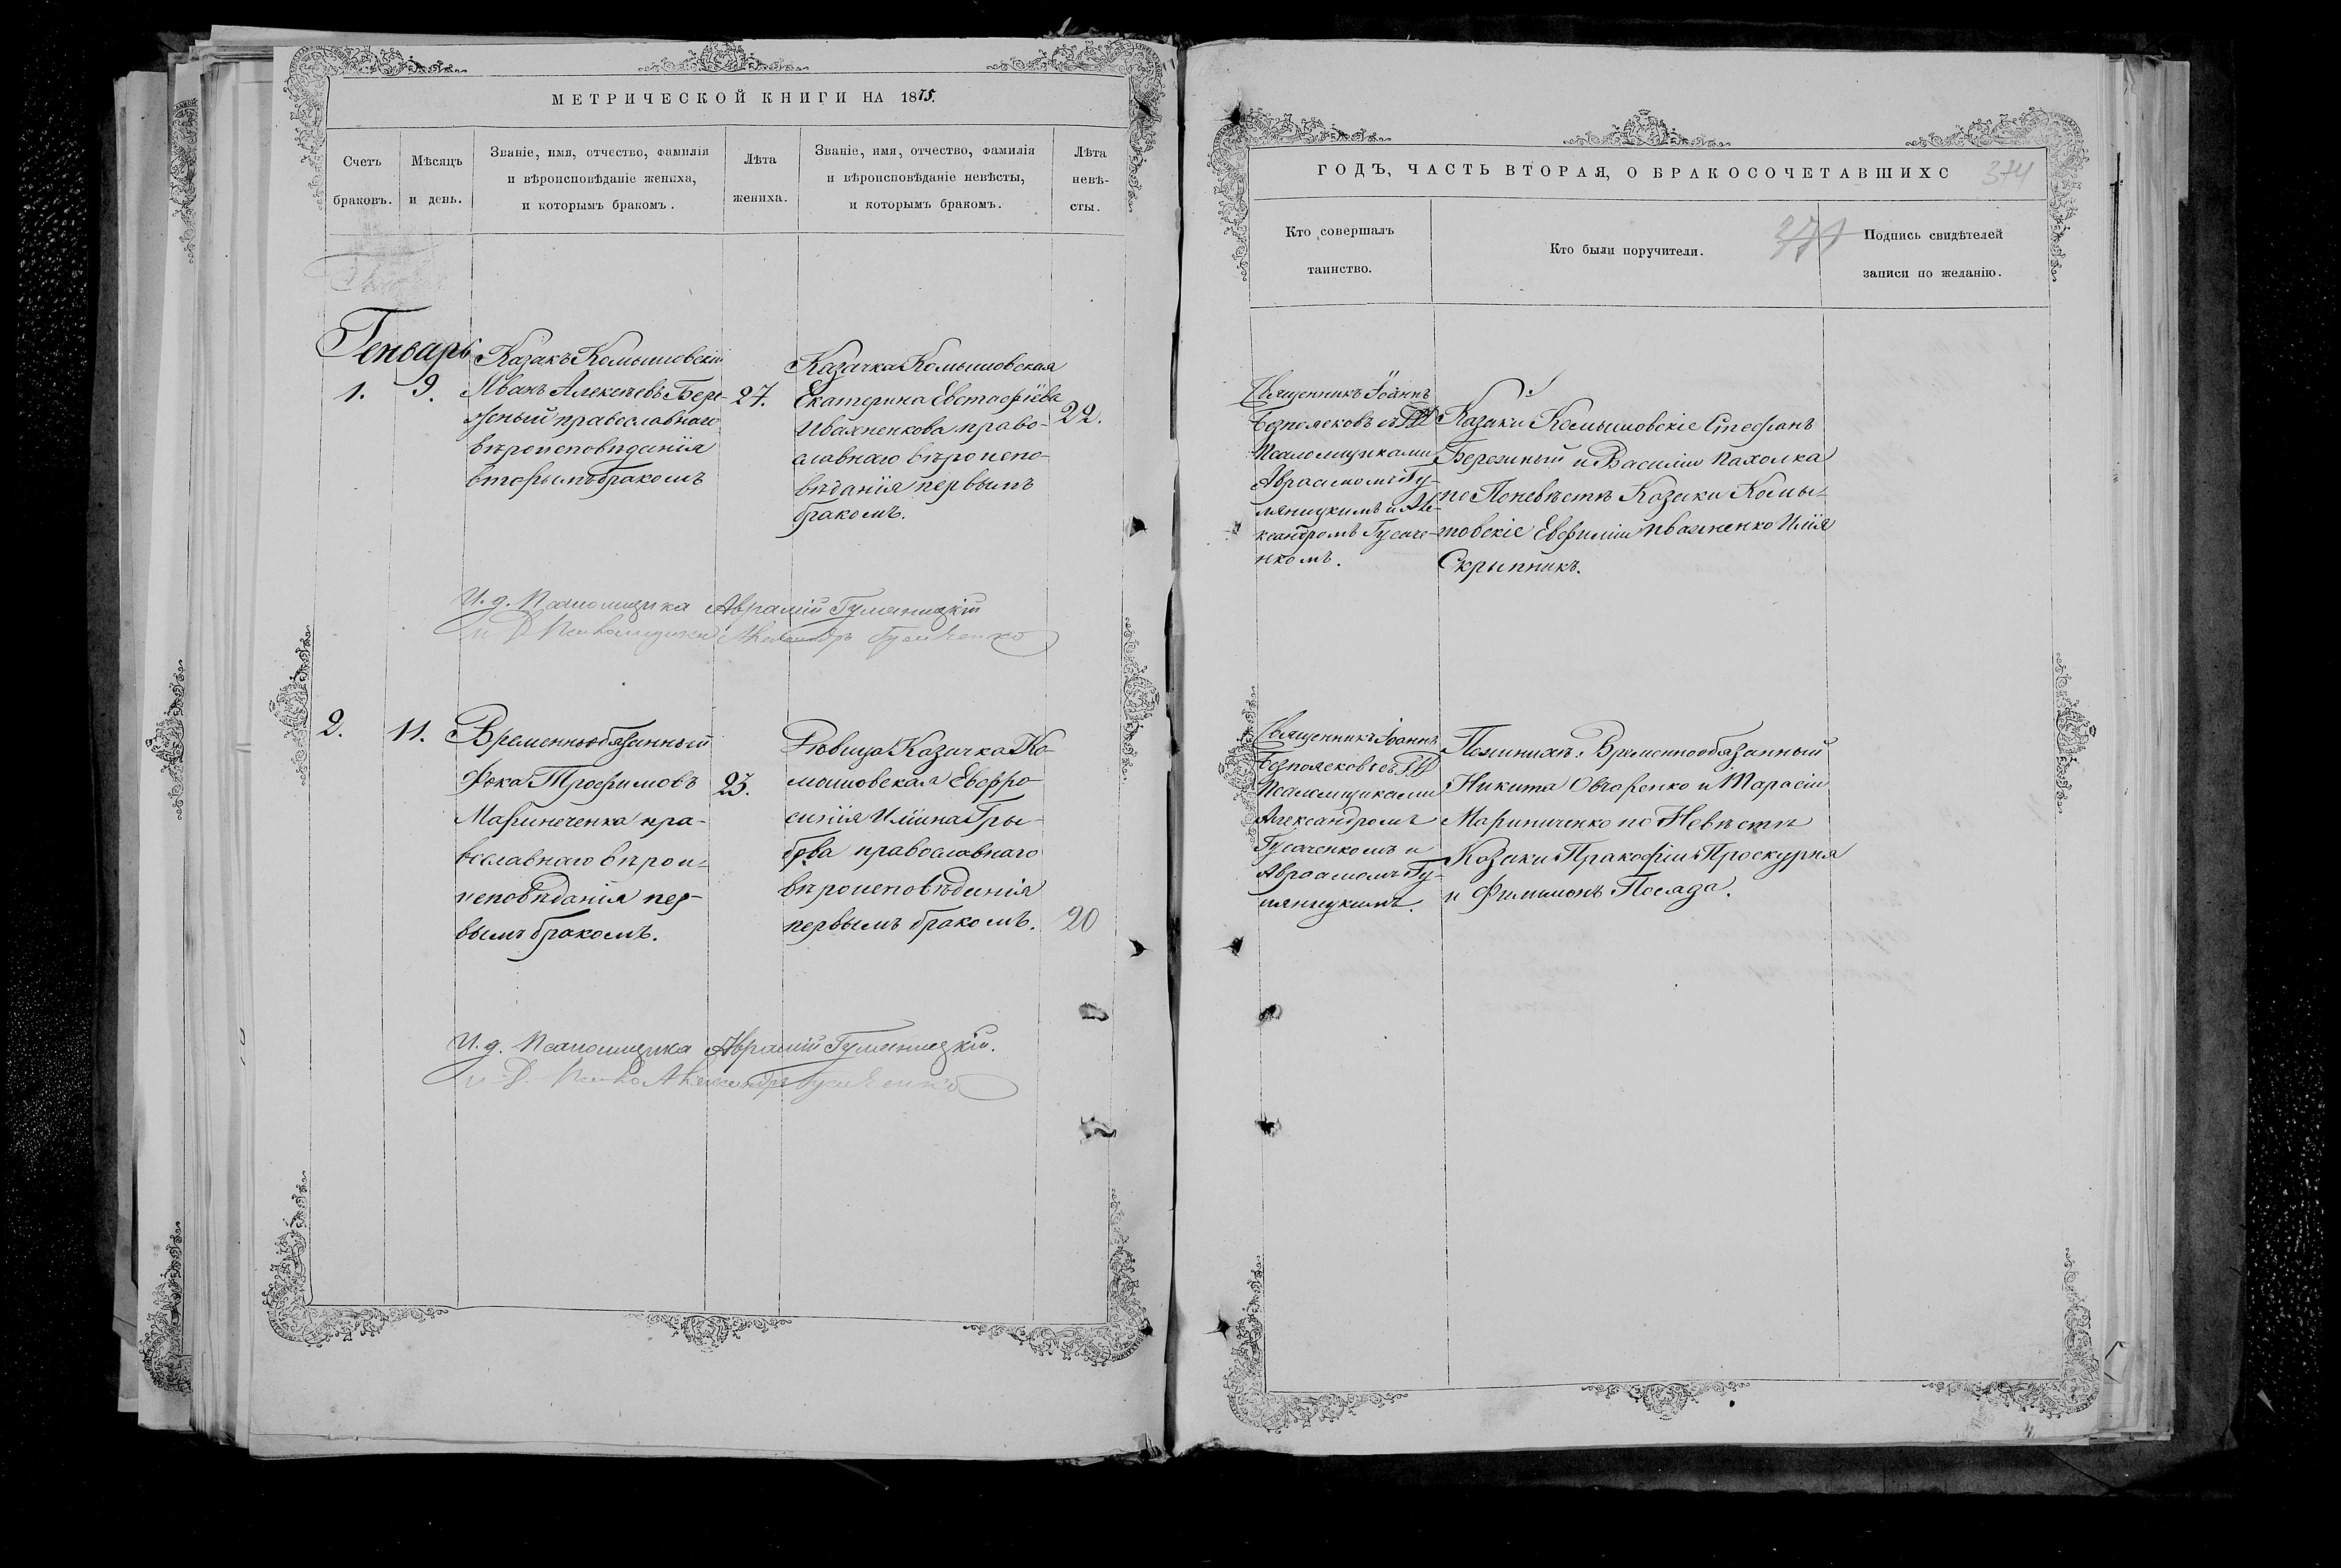 МЕТРИЧЕСКОЙ КНИГИ НА 1875.
Счетъ
браковъ.
Мѣсяцъ
и день.
Званіе, имя, отчество, фамилія
и вѣроисповѣданіе жениха,
и которымъ бракомъ.
Лѣта
жениха.
Званіе, имя, отчество, фамилія
и вѣроисповѣданіе невѣсты,
и которымъ бракомъ.
Лѣта
невѣ-
сты.
Генварь
1.
9.
Казакъ Комышовскій
Иванъ Алексѣевъ Бере-
зеный православнаго
вѣроисповѣданія
вторымъ бракомъ
27.
Казачка Комышовская
Екатерина Евстафіева
Ивахненкова право-
славнаго вѣроиспо-
вѣданія первымъ
бракомъ.
22.
И. д. Псаломщика Аврамій Гумяницкій
и Д Псаломщика Александръ Гусаченко
2.
11.
Временнообязанный
Фока Трофимовъ
Маринеченко пра-
вославнаго вѣрои-
исповѣданія пер-
вымъ бракомъ.
23.
Дѣвица Казачка Ко-
мышовская Евфро-
синія Иліина Гры-
бова православнаго
вѣроисповѣданія
первымъ бракомъ.
20
И. д. Псаломщика Аврамій Гумяницкій.
и Д. Александръ Гусаченко
ГОДЪ, ЧАСТЬ ВТОРАЯ, О БРАКОСОЧЕТАВШИХС
374
Кто совершалъ
таинство.
Кто были поручители.
Подпись свидѣтелей
записи по желанію.
Священникъ Іоаннъ
Безполсковъ съ
Псаломщиками
Авраамомъ Гу-
мяницкимъ и Але-
ксандромъ Гусаче-
нкомъ.
Казаки Комышовскіе Стефанъ
Березиный и Василій Пахолка
по Невѣстѣ Казаки Комы-
шовскіе Евфимій Ивахненко Илія
Скрыпникъ.
Священникъ Іоаннъ
Безполсковъ съ
Псаломщиками
Александромъ
Гусаченкомъ и
Авраамомъ Гу-
мяницкимъ.
По жених: Временнообязанный
Никита Овчаренко и Тарасій
Мариниченко по Невѣстѣ
Козаки Пракофій Проскурня
и Филимонъ Посада.